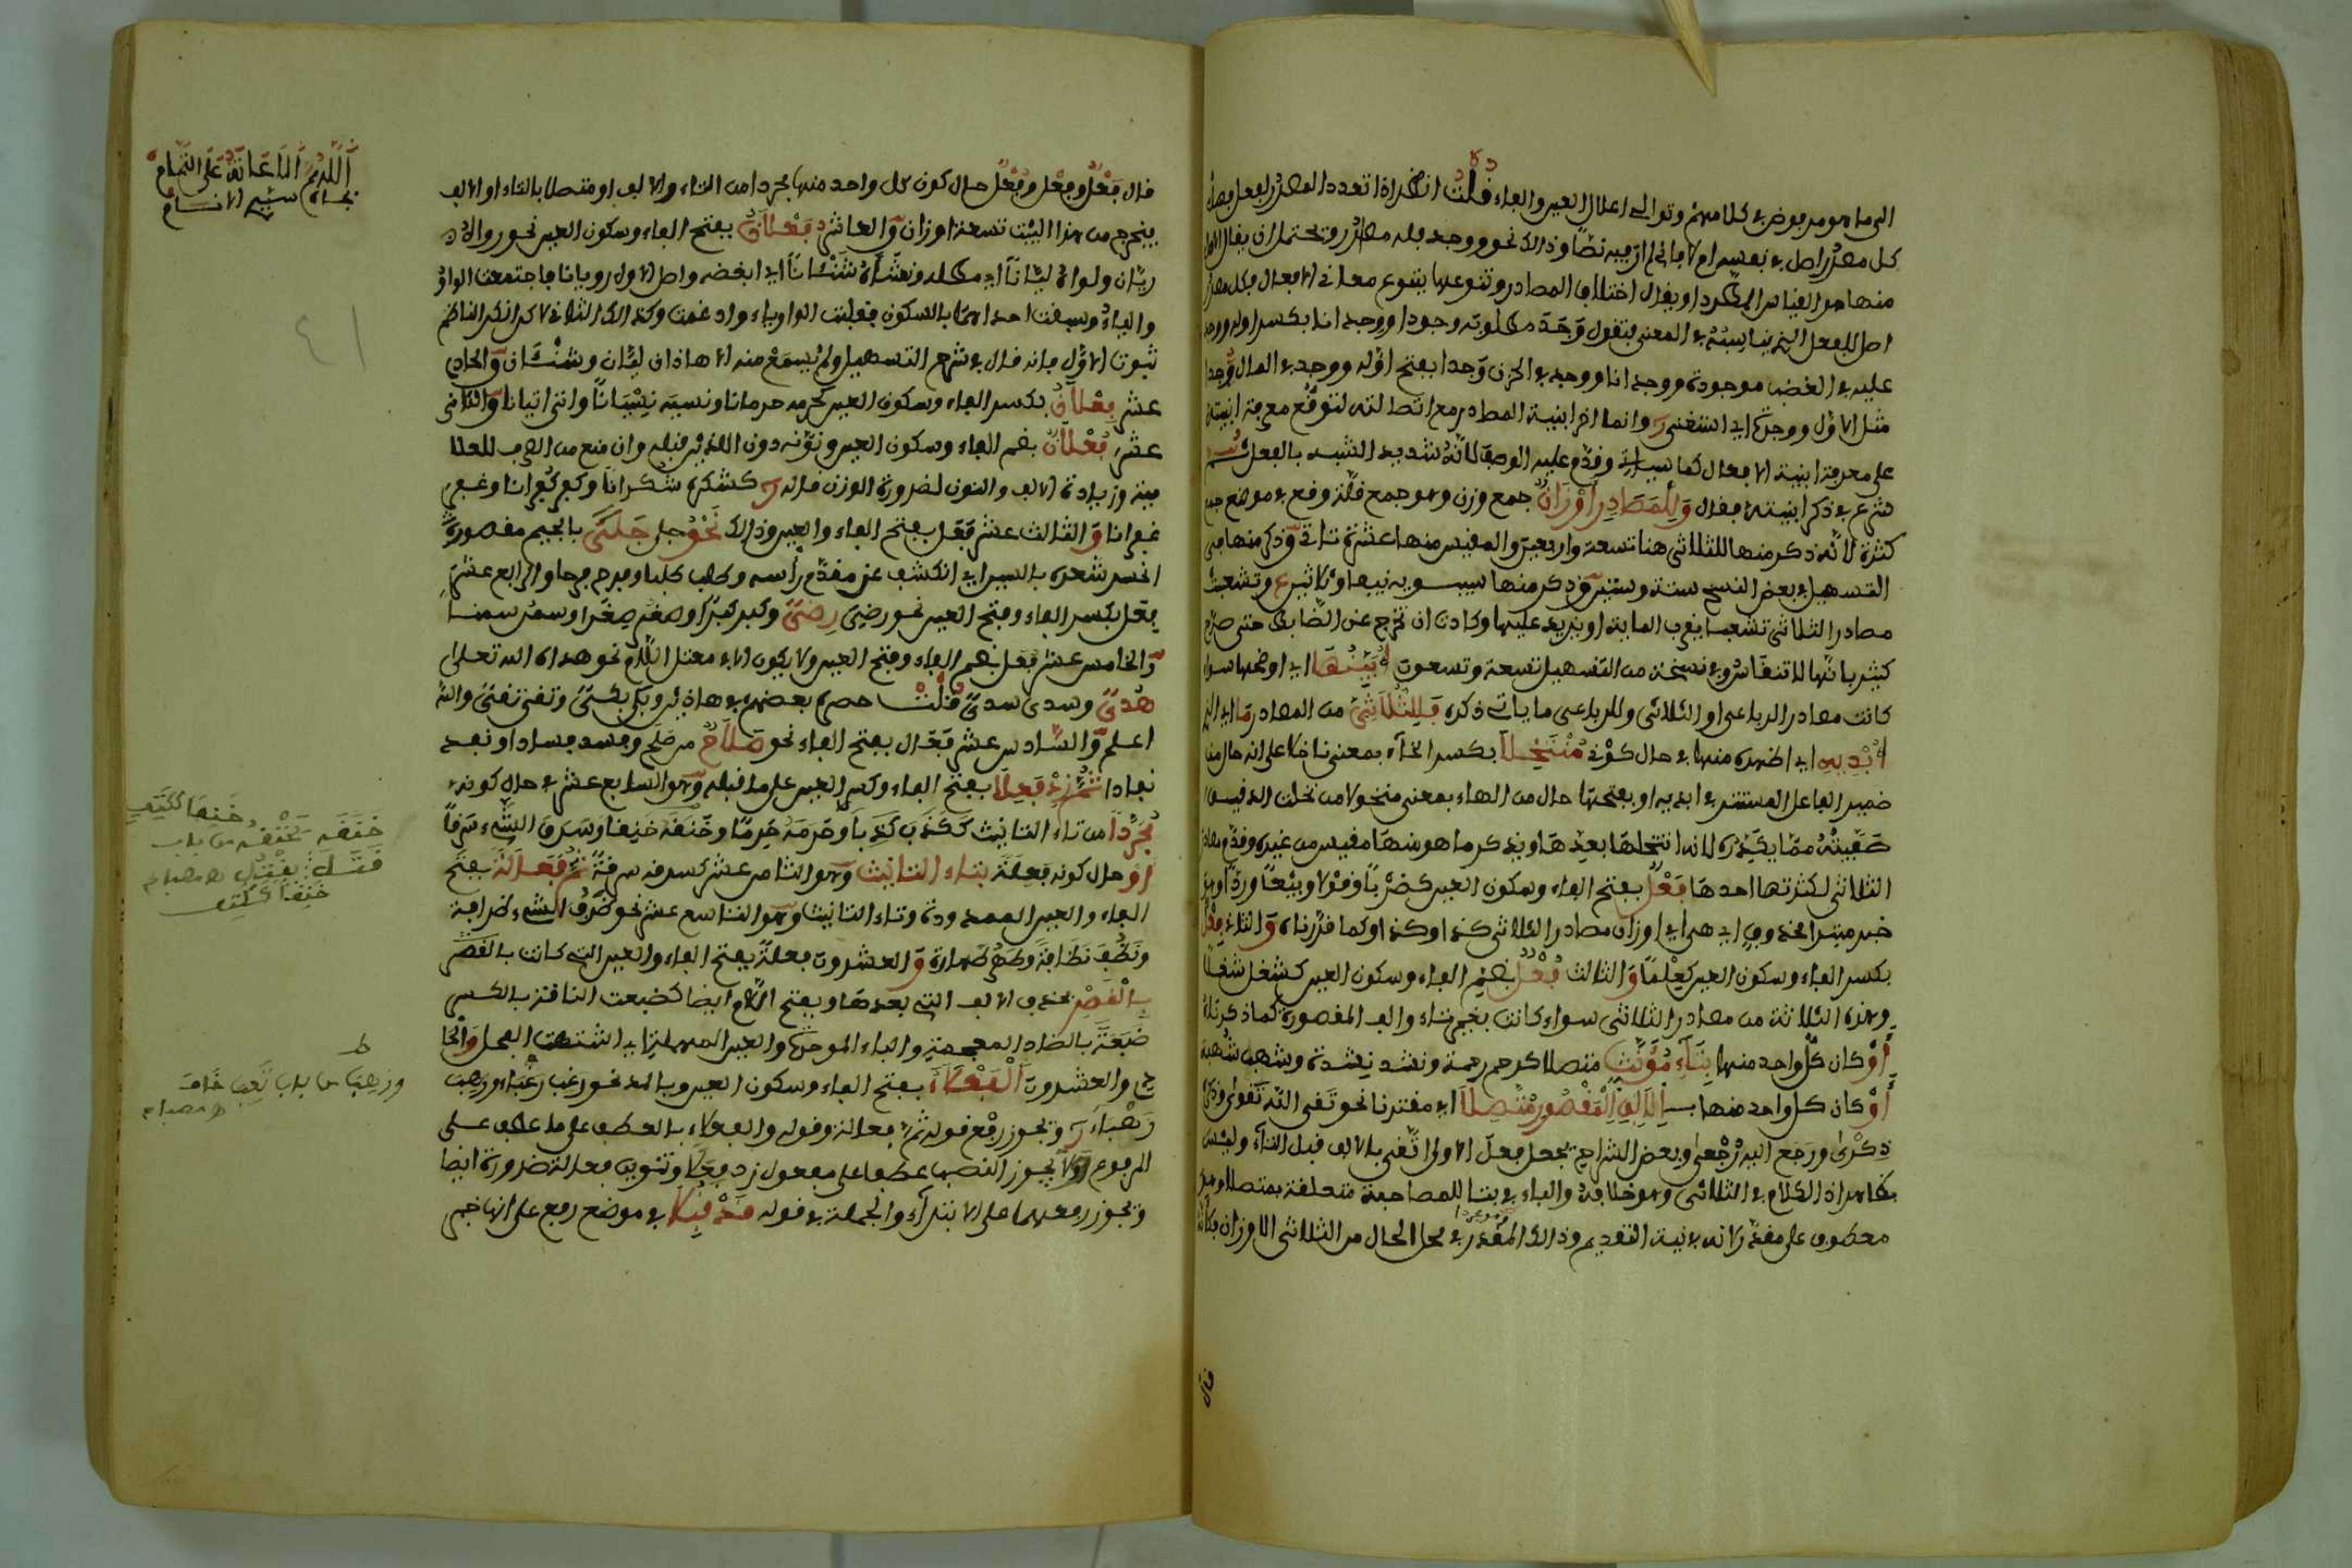 الى ما هو مرفوض في كلامهم وتوالى اعلال العين والفاء قلت انظر اذا تعدد المصدر لفعل فهل
كل مصدر اصل في نفسه ام لا فاني لم ار فيه نصا وذلك نحو وجد فله مصادر ويحتمل ان يقال
منها هو القياس المطرد او يقال اختلاف المصادر وتنوعها بتنوع معاني الافعال فكل مصدر
اصل للفعل الذي يناسبه في المعنى فتقول وجد مطلوبه وجودا ووجدانا بكسر اوله ووجد
عليه في الغضب موجدة ووجدانا ووجد في الحزن وجدا بفتح اوله ووجد في المال وجدا
مثل الاول ووجدة اي استغنى وانما اخر ابنية المصادر مع اصالته لتوقف معرفة ابنيته
على معرفة ابنية الافعال كما سياتي وقدم عليه الوصف لانه شديد الشبه بالفعل ثم
شرع في ذكر ابنيته فقال وللمصادر اوزان جمع وزن وهو جمع قلة وقع في موضع جمع
كثرة لانه ذكر منها للثلاثي هنا تسعة واربعين والمقيس منها عشرة تاتي وذكر منها في
التسهيل في بعض النسخ ستة وستين وذكر منها سيبويه نيفا وثلاثين وتشعبت
مصادر الثلاثي تشعبا يقرب المائة او يزيد عليها وكادت ان تخرج عن الضابط حتى صرح
كثير بانها لا تنقاس وفي نسخة من التسهيل تسعة وتسعون ابينها اي اوضحها سواء
كانت مصادر الرباعي او الثلاثي وللرباعي ما ياتي ذكره فللثلاثي من المصادر ما اي الذي
ابديه اي اظهره منها في حال كوني منتخلا بكسر الخاء بمعنى ناخلا على انه حال من
ضمير الفاعل المستتر في ابديه او بفتحها حال من الهاء بمعنى منخولا من نخلت الدقيق
صفيته مما يكدره لانه انتخلها بعدها ويذكر ما هو منها مقيس من غيره وقدم مصادر
الثلاثي لكثرتها احدها فعل بفتح الفاء وسكون العين كضرب ضربا وقولا وبيعا وردا وهو
خبر مبتدا محذوف اي هي اي اوزان مصادر الثلاثي كذا وكذا كما قررناه والثاني فعل
بكسر الفاء وسكون العين كعلم علما والثالث فعل بضم الفاء وسكون العين كشغل شغلا
وهذه الثلاثة من مصادر الثلاثي سواء كانت بغير تاء والف المقصورة كما ذكرناه
او كان كل واحد منها بتاء مؤنث متصلا كرحم رحمة ونشد نشدة وشهب شهبة
او كان كل واحد منها بـ الالف المقصور متصلا اي مقترنا نحو تقى الله تقوى وذكر
ذكرى ورجع اليه رجعى وبعض الشراح يجعل فعل الاولى تغنى بالالف قبل التاء وليس
بظاهر اذ الكلام في الثلاثي وهو خلافه والباء في بتا للمصاحبة متعلقة بمتصلا وهو
معطوف على مقدر لانه في نية التقديم وذلك المقدر في محل الحال من الثلاثي الاوزان فكانه
قال
اللهم الاعانة على التمام
بجاه سيد الانام
٤١
قال فعل وفعل وفعل حال كون كل واحد منها مجردا من التاء والالف او متصلا بالتاء او الالف
فيخرج من هذا البيت تسعة اوزان والعاشر فعلان بفتح الفاء وسكون العين نحو روا
ريان ولواه ليانا اي مطله ونشاه شنئانا اي ابغضه واصل الاول رويانا فاجتمعت الواو
والياء وسبقت احداهما بالسكون فقلبت الواو ياء وادغمت وكذلك الثاني لاكن انكر الناظم
ثبوت الاول فانه قال في شرح التسهيل ولم يسمع منه الا هاذان ليان وشنئان والحادي
عشر فعلان بكسر الفاء وسكون العين كحرمه حرمانا ونسيه نسيانا واتى اتيانا والثاني
عشر فعلان بضم الفاء وسكون العين ونونه دون اللذين قبله وان منع من الصرف للعلا
مية وزيادة الالف والنون لضرورة الوزن قاله كشكره شكرانا وكفر كفرانا وغفر
غفرانا والثالث عشر فعل بفتح الفاء والعين وذلك نحو جلى جلى بالجيم مقصورة
انحسر شعره بالسين اي انكشف عن مقدم راسه وطلب طلبا وفرح فرحا والرابع عشر
فعل بكسر الفاء وفتح العين نحو رضي رضى وكبر كبرا وصغر صغرا وسمن سمنا
والخامس عشر فعل بضم الفاء وفتح العين ولا يكون الا في معتل اللام نحو هداه الله تعلى
هدى وسدى سدى قلت حصره بعضهم في هاذين وبكى بكى وتقى تقى والله
اعلم والسادس عشر فعال بفتح الفاء نحو صلاح من صلح وفسد فسادا ونفد
نفادا ثم زد فعلا بفتح الفاء وكسر العين على ما قبله وهو السابع عشر في حال كونه
مجردا من تاء التانيث ككذب كذبا وحرمه حرما وخنقه خنقا وسرق الشيء سرقا
او حال كونه فعلة بتاء التانيث وهو الثامن عشر كسرقه سرقة ثم فعالة بفتح
الفاء والعين الممدودة وتاء التانيث وهو التاسع عشر نحو ظرف الشيء ظرافة
ونظف نظافة وطهر طهارة والعشرون فعلة بفتح الفاء والعين التي كانت بالقصر
بالقصر بحذف الالف التي بعدها وبفتح اللام ايضا كضبعت الناقة بالكسر
ضبعة بالضاد المعجمة والباء الموحدة والعين المهملة اي اشتهت الفحل والحا
دي والعشرون الفعلاء بفتح الفاء وسكون العين وبالمد نحو رغب رغباء ورهب
رهباء ويجوز رفع قوله ثم فعالة وقوله والفعلاء بالعطف على ما عطف على
المرفوع ولا يجوز النصب عطفا على مفعول زد فعلا وتنوين فعالة ضرورة ايضا
ويجوز رفعهما على الابتداء والجملة في قوله قد قبلا في موضع رفع على انها خبر
خنقه يخنقه من باب
قتل يقتل
خنقا ككتف
ورهب من باب تعب خاف